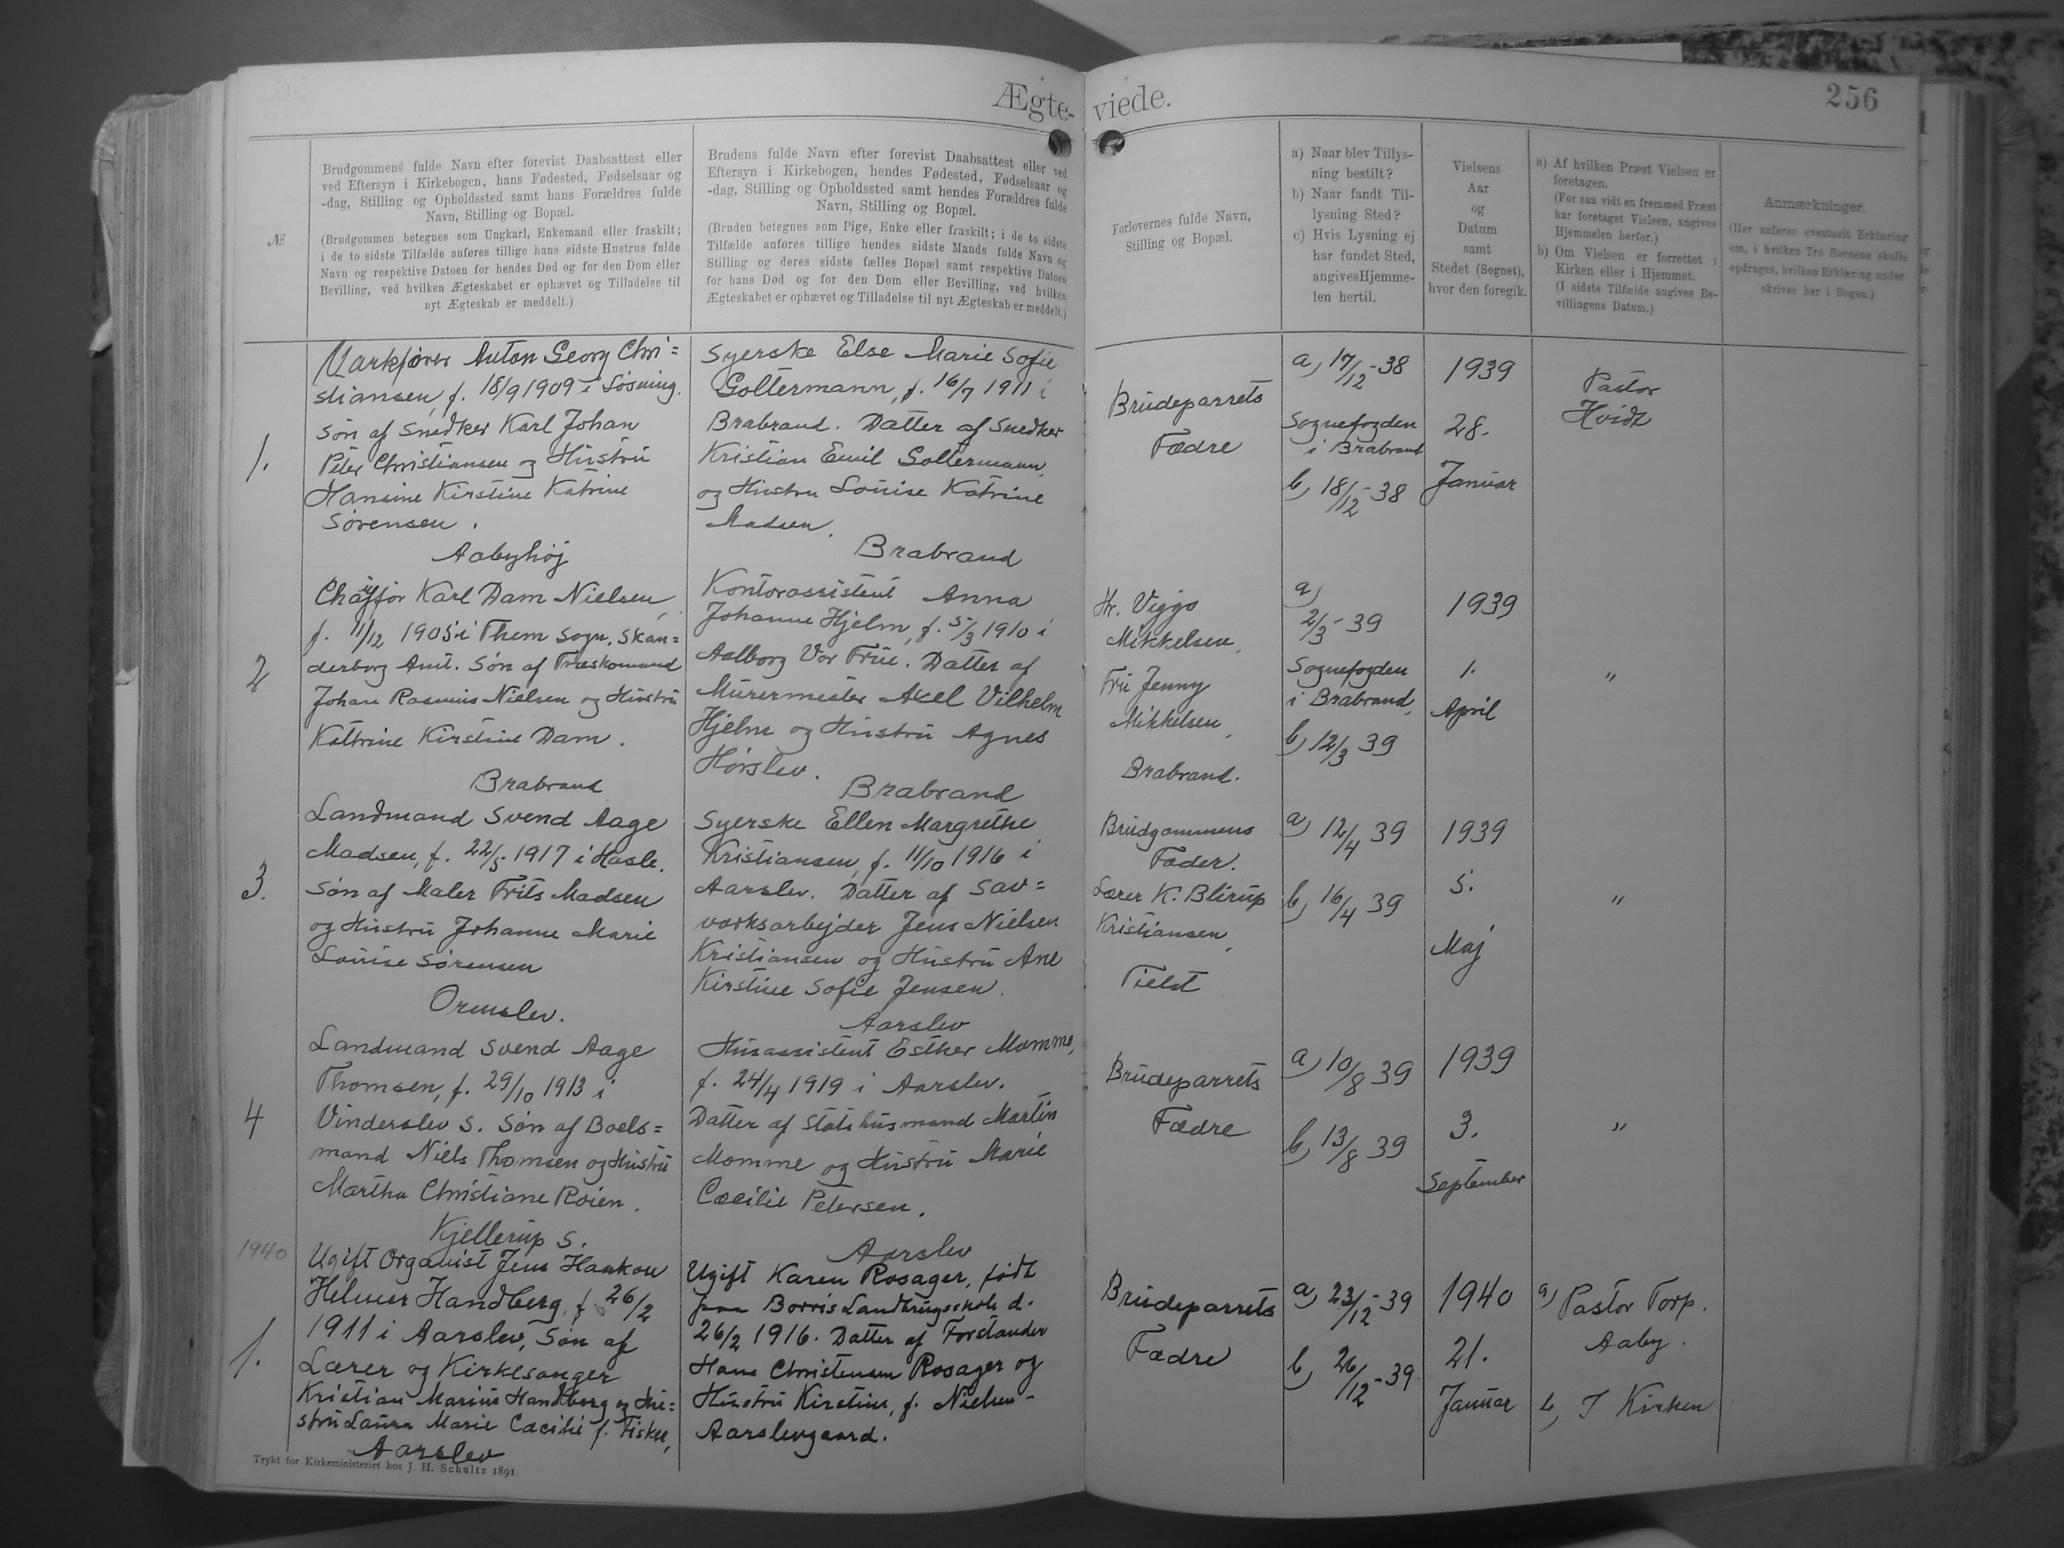 Ægteviede.
256
№
Brudgommens fulde Navn efter forevist Daabsattest eller
ved Eftersyn i Kirkebogen, hans Fødested, Fødselsaar og
-dag, Stilling og Opholdssted samt hans Forældres fulde
Navn, Stilling og Bopæl.
(Brudgommen betegnes som Ungkarl, Enkemand eller fraskilt;
i de to sidste Tilfælde anføres tillige hans sidste Hustrus fulde
Navn og respektive Datoen for hendes Død og for den Dom eller
Bevilling, ved hvilken Ægteskabet er ophævet og Tilladelse til
nyt Ægteskab er meddelt.)
Brudens fulde Navn efter forevist Daabsattest eller ved
Eftersyn i Kirkebogen, hendes Fødested, Fødselsaar og
-dag, Stilling og Opholdssted samt hendes Forældres fulde
Navn, Stilling og Bopæl.
(Bruden betegnes som Pige, Enke eller fraskilt; i de to sidste
Tilfælde anføres tillige hendes sidste Mands fulde Navn og
Stilling og deres sidste fælles Bopæl samt respektive Datoen
for hans Død og for den Dom eller Bevilling, ved hvilken
Ægteskabet er ophævet og Tilladelse til nyt Ægteskab er meddelt.)
Forlovernes fulde Navn,
Stilling og Bopæl.
a) Naar blev Tillys-
ning bestilt?
b) Naar fandt Til-
lysning Sted?
c) Hvis Lysning ej
har fundet Sted,
angives Hjemme-
len hertil.
Vielsens
Aar
og
Datum
samt
Stedet (Sognet),
hvor den foregik.
a) Af hvilken Præst Vielsen er
foretagen.
(For saa vidt en fremmed Præst
har foretaget Vielsen, angives
Hjemmelen herfor.)
b) Om Vielsen er forrettet i
Kirken eller i Hjemmet.
(I sidste Tilfælde angives Be-
villingens Datum.)
Anmærkninger.
(Her anføres eventuelt Erklæring
om, i hvilken Tro Børnene skulle
opdrages, hvilken Erklæring under
skrives her i Bogen.)
1.
Værkfører Anton Georg Chri=
stiansen, f. 18/9 1909 i Løsning.
Søn af Snedker Karl Johan
Peter Christiansen og Hustru
Hansine Kirstine Katrine
Sørensen.
Aabyhøj
Syerske Else Marie Sofie
Goltermann, f. 16/7 1911 i
Brabrand. Datter af Snedker
Kristian Emil Goltermann
og Hustru Louise Katrine
Madsen.
Brabrand
Brudeparrets
Fædre
a) 17/12-38
Sognefogden
i Brabrand
b) 18/12-38
1939
28.
Januar
Pastor
Hvidt
2
Chauffør Karl Dam Nielsen,
f. 11/12 1905 i Them Sogn, Skan=
derborg Amt. Søn af Træskomand
Johan Rasmus Nielsen og Hustru
Kathrine Kirstine Dam.
Brabrand
Kontorassistent Anna
Johanne Hjelm, f. 5/3 1910 i
Aalborg Vor Frue. Datter af
Murermester Axel Vilhelm
Hjelm og Hustru Agnes
Hørslev.
Brabrand
Hr. Viggo
Mikkelsen,
Fru Jenny
Mikkelsen,
Brabrand.
a)
2/3-39
Sognefogden
i Brabrand,
b) 12/3 39
1939
1.
April
"
3.
Landmand Svend Aage
Madsen, f. 22/5 1917 i Hasle.
Søn af Maler Frits Madsen
og Hustru Johanne Marie
Louise Sørensen
Ormslev.
Syerske Ellen Margrethe
Kristiansen, f. 11/10 1916 i
Aarslev. Datter af Sav=
værksarbejder Jens Nielsen
Kristiansen og Hustru Ane
Kirstine Sofie Jensen.
Aarslev
Brudgommens
Fader.
Lærer K. Blirup
Kristiansen,
Tilst
a) 12/4 39
b) 16/4 39
1939
5.
Maj
"
4
Landmand Svend Aage
Thomsen, f. 29/10 1913 i
Vinderslev S. Søn af Boels=
mand Niels Thomsen og Hustru
Martha Christiane Roien.
Kjellerup S.
Husassistent Esther Momme,
f. 24/4 1919 i Aarslev.
Datter af Statshusmand Martin
Momme og Hustru Marie
Cæcilie Petersen.
Aarslev
Brudeparrets
Fædre
a) 10/8 39
b) 13/8 39
1939
3.
September
"
1940
1.
Ugift Organist Jens Haakon
Helmer Handberg, f. 26/2
1911 i Aarslev, Søn af
Lærer og Kirkesanger
Kristian Marius Handberg og Hu=
stru Laura Marie Cæcilie f. Fisker,
Aarslev
Ugift Karen Rosager, født
paa Borris Landbrugsskole d.
26/2 1916. Datter af Forstander
Hans Christensen Rosager og
Hustru Kirstine, f. Nielsen-
Aarslevgaard.
Brudeparrets
Fædre
a) 23/12-39
b) 26/12-39
1940
21.
Januar
a) Pastor Torp.
Aaby.
b) I Kirken
Trykt for Kirkeministeriet hos J. H. Schultz 1891.